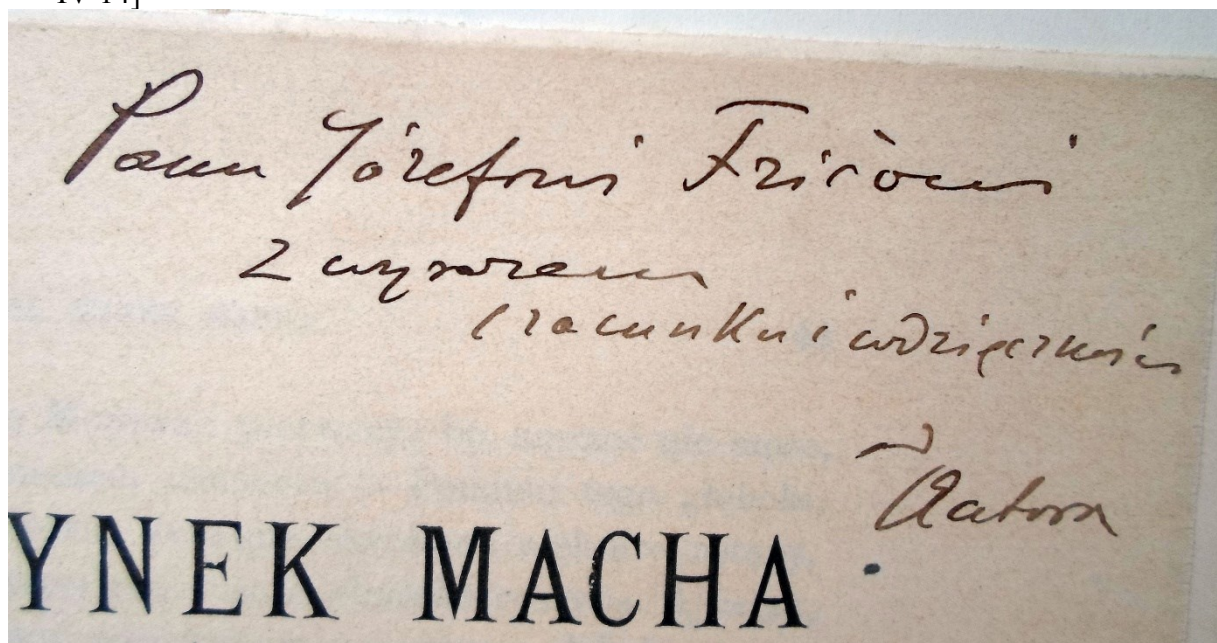 IV-14]
Panu Józefowi Fričowi
z wyrazem
szacunku i wdzięczności
Autora
YNEK MACHA